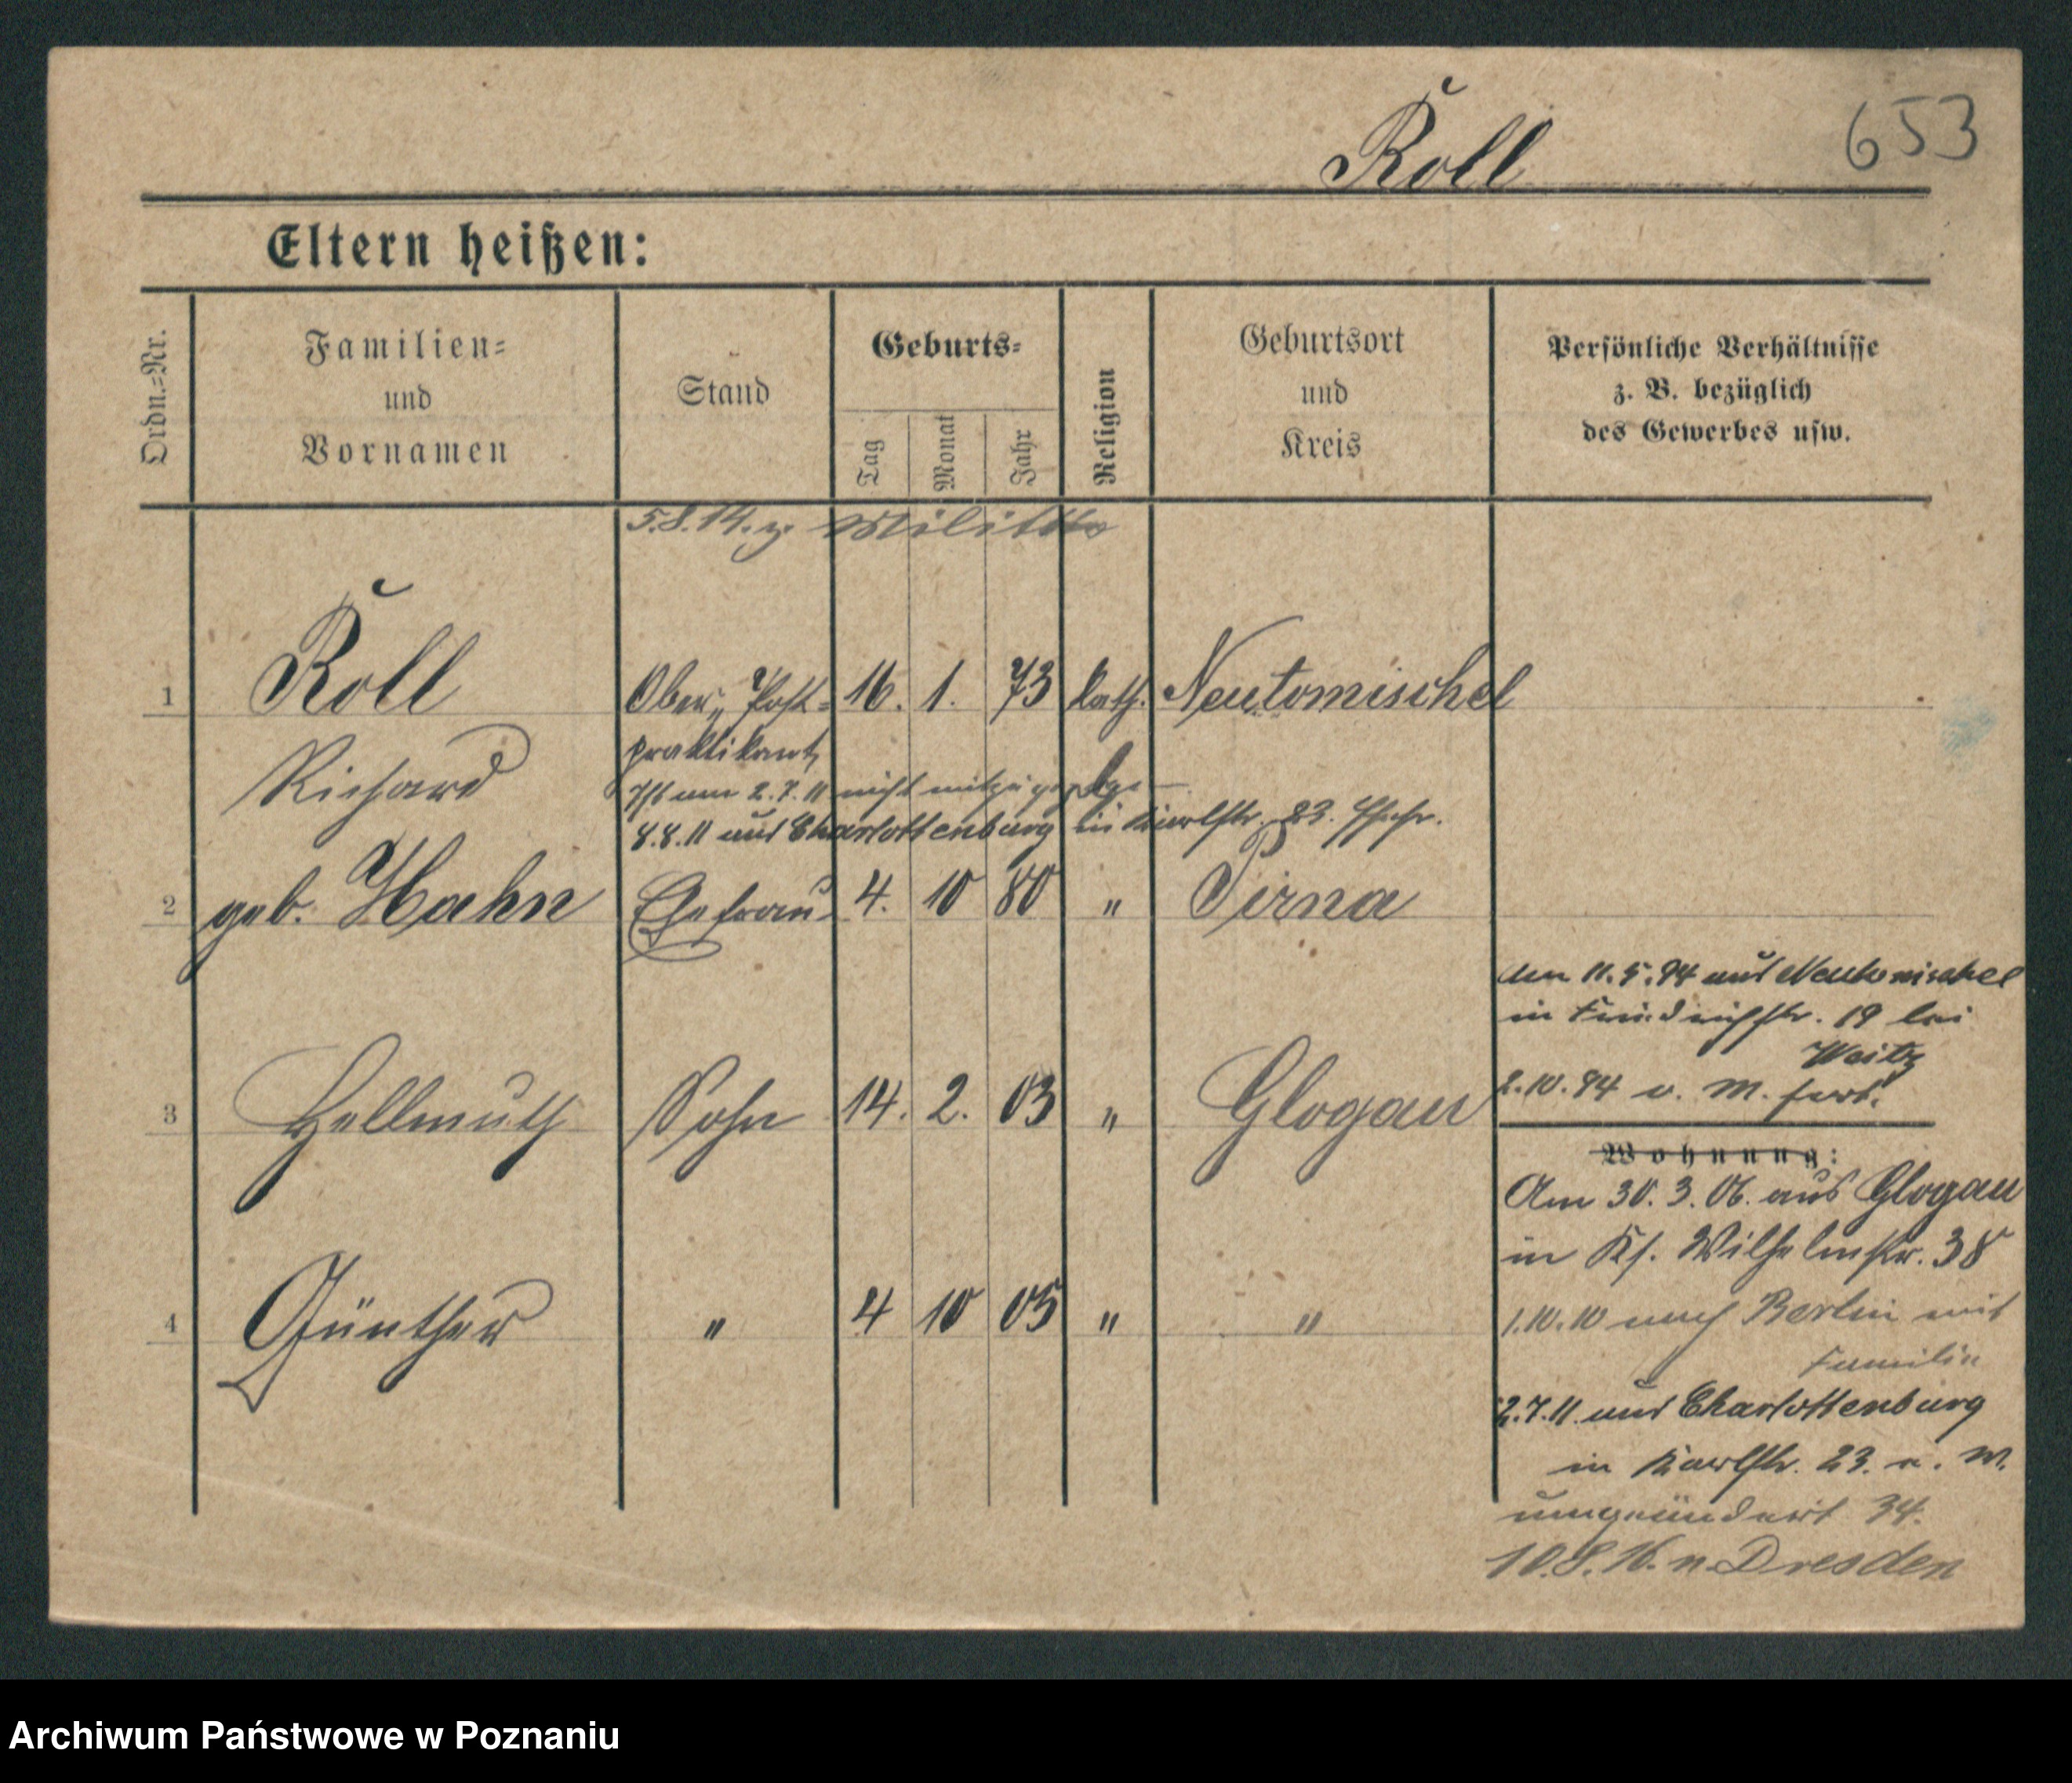 Roll
653
Eltern heißen:
Ordn.=Nr.
Familien=
und
Vornamen
Stand
Geburts=
Tag
Monat
Jahr
Religion
Geburtsort
und
Kreis
Persönliche Verhältnisse
z. B. bezüglich
des Gewerbes usw.
5.8.14. z. Militär
1 Roll Ober„ Post= 16. 1. 73 kath. Neutomischel
Richard praktikant,
2.7.11 nicht
8.8.11 aus Charlottenburg in 23.
2 geb. Hahn Ehefrau 4. 10 80 " Pirna
3 Hellmuth Sohn 14. 2. 03 " Glogau
4 Günther " 4 10 05 " "
Am 11.5.94 aus Neutomischel
in Friedrichstr. 19 bei
Weitz
2.10.94 v. M. fort.
Wohnung:
Am 30.3.06. aus Glogau
in Ks. Wilhelmstr. 38
1.10.10 nach Berlin mit
Familie
2.7.11. aus Charlottenburg
in Karlstr. 23. v. W.
umgeändert 34.
10.8.16. n. Dresden
Archiwum Państwowe w Poznaniu